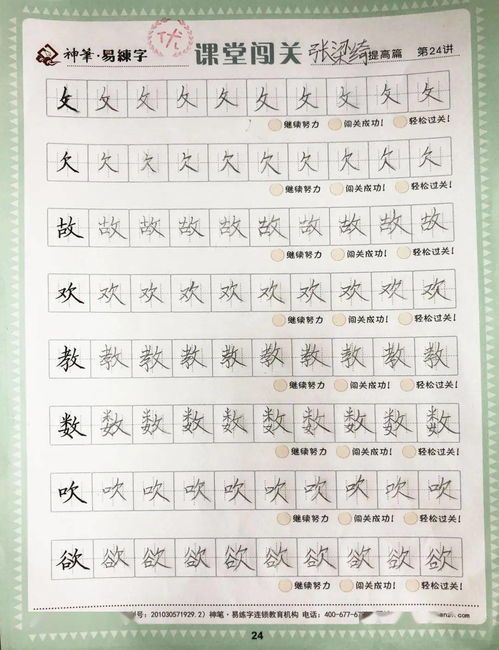 神筆·易練字 优 课堂闯关 张梁绮 提高篇 第24讲
攵 攵 攵 攵 攵 攵 攵 攵 攵 攵
继续努力 闯关成功! 轻松过关!
欠 欠 欠 欠 欠 欠 欠 欠 欠 欠
继续努力 闯关成功! 轻松过关!
故 故 故 故 故 故 故 故 故 故
继续努力 闯关成功! 轻松过关!
欢 欢 欢 欢 欢 欢 欢 欢 欢 欢
继续努力 闯关成功! 轻松过关!
教 教 教 教 教 教 教 教 教 教
继续努力 闯关成功! 轻松过关!
数 数 数 数 数 数 数 数 数 数
继续努力 闯关成功! 轻松过关!
吹 吹 吹 吹 吹 吹 吹 吹 吹 吹
继续努力 闯关成功! 轻松过关!
欲 欲 欲 欲 欲 欲 欲 欲 欲 欲
继续努力 闯关成功! 轻松过关!
号: 201030571929.2) 神笔·易练字连锁教育机构 电话: 400-677-6
24